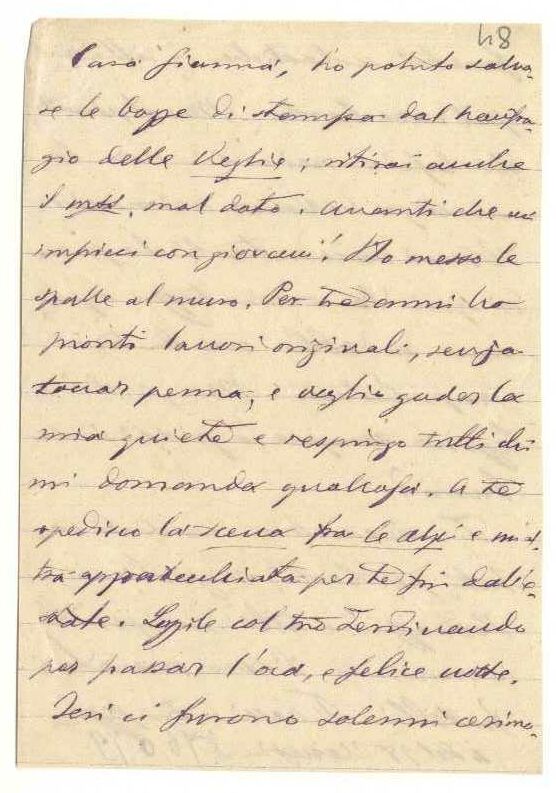 48
Cara Gianna, ho potuto salva-
re le boffe di stampa dal naufra-
gio delle Veglie; ritirai anche
il mss. mal dato. Avanti che
impicci con giovani! Ho messo le
spalle al muro. Per tre anni ho
pronti lavori originali, senza
toccar penna, e voglio goder la
mia quiete e respingo tutti chi
mi domanda qualcosa. A te
spedisco la scena fra le alpi e
apparecchiata per te fin dall'e-
state. Leggile col tuo Ferdinando
per passar l'ora, e felice notte.
Ieri ci furono solenni cerimo-